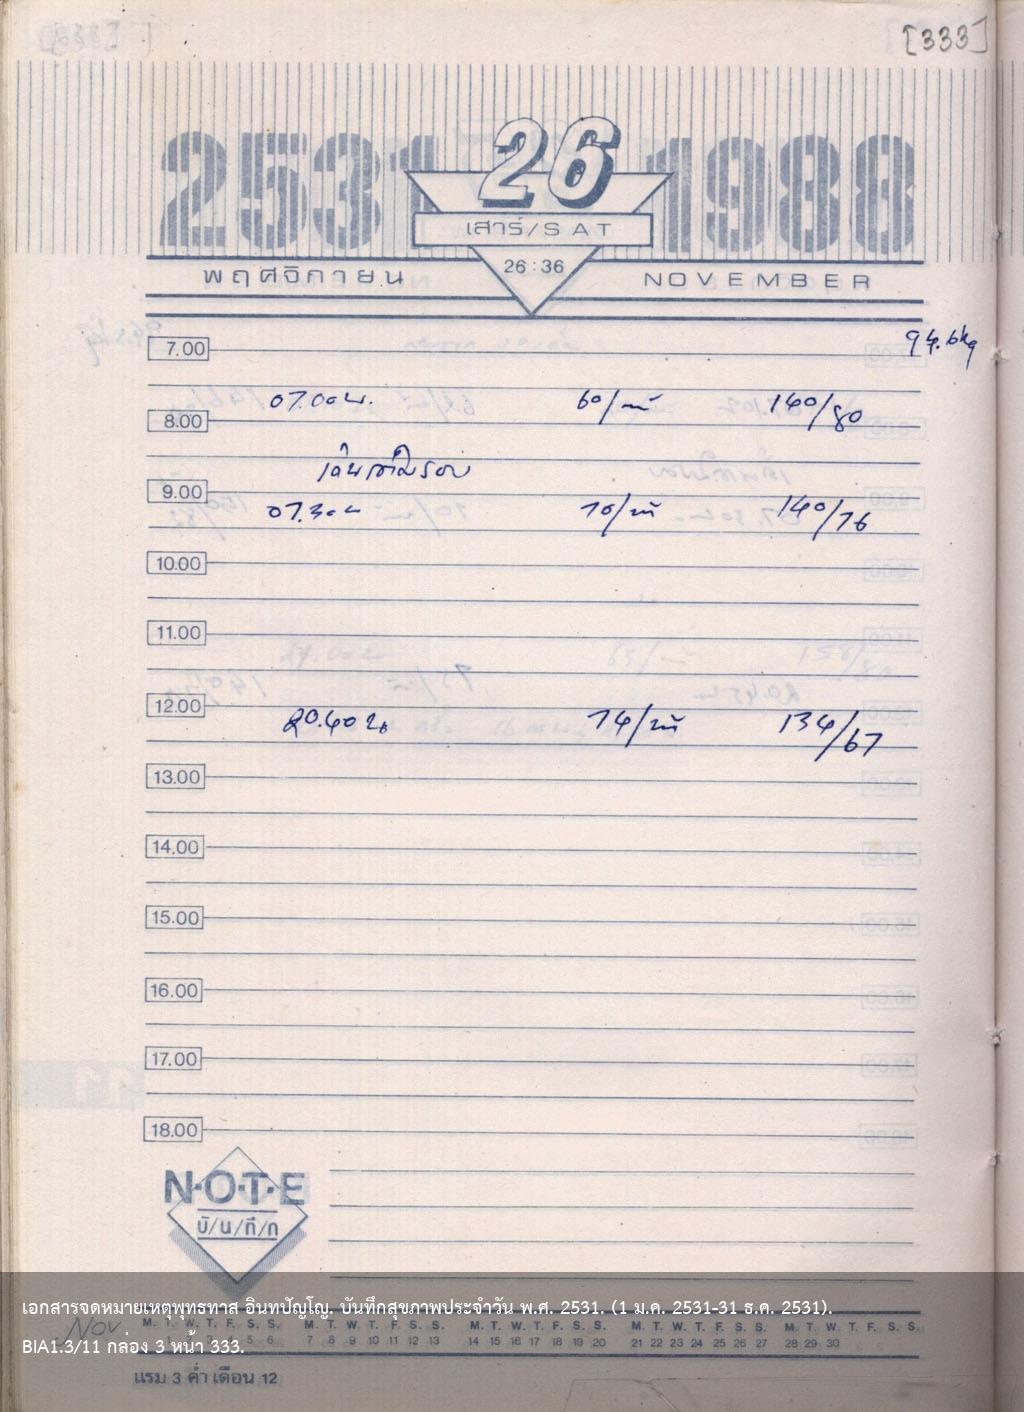 [333]
2531 26 1988
เสาร์/SAT
พฤศจิกายน 26:36 NOVEMBER
7.00 94.6kg
07.00 น. 60/นาที 140/80
8.00
เดิน รอบ
9.00
07.30 น 70/นาที 140/76
10.00
11.00
12.00
20.40 น 74/นาที 134/67
13.00
14.00
15.00
16.00
17.00
18.00
N·O·T·E
บั/น/ทึ/ก
เอกสารจดหมายเหตุพุทธทาส อินทปัญโญ. บันทึกสุขภาพประจำวัน พ.ศ. 2531. (1 ม.ค. 2531-31 ธ.ค. 2531).
Nov M. T. W. T. F. S. S. M. T. W. T. F. S. S. M. T. W. T. F. S. S. M. T. W. T. F. S. S. M. T. W. T. F. S. S.
1 2 3 4 5 6 7 8 9 10 11 12 13 14 15 16 17 18 19 20 21 22 23 24 25 26 27 28 29 30
BIA1.3/11 กล่อง 3 หน้า 333.
แรม 3 ค่ำ เดือน 12